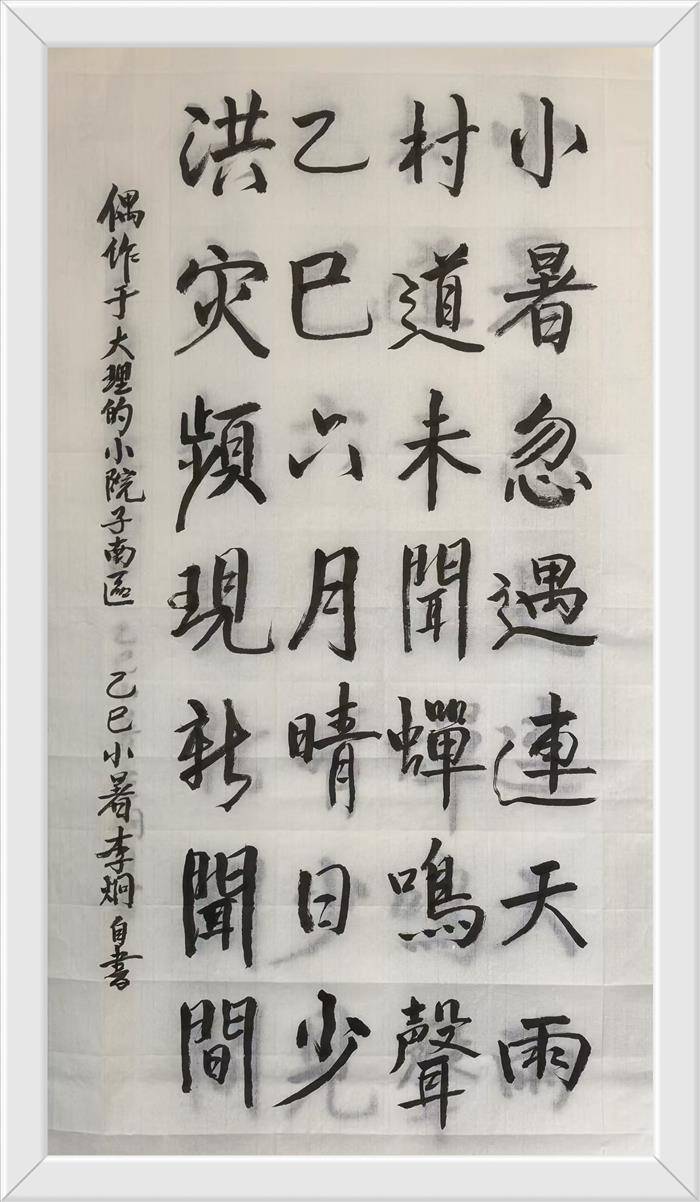 小暑忽遇連天雨
村道未聞蟬鳴聲
乙巳六月晴日少
洪灾頻現新聞間
偶作于大理的小院子南區 乙巳小暑李炯自書